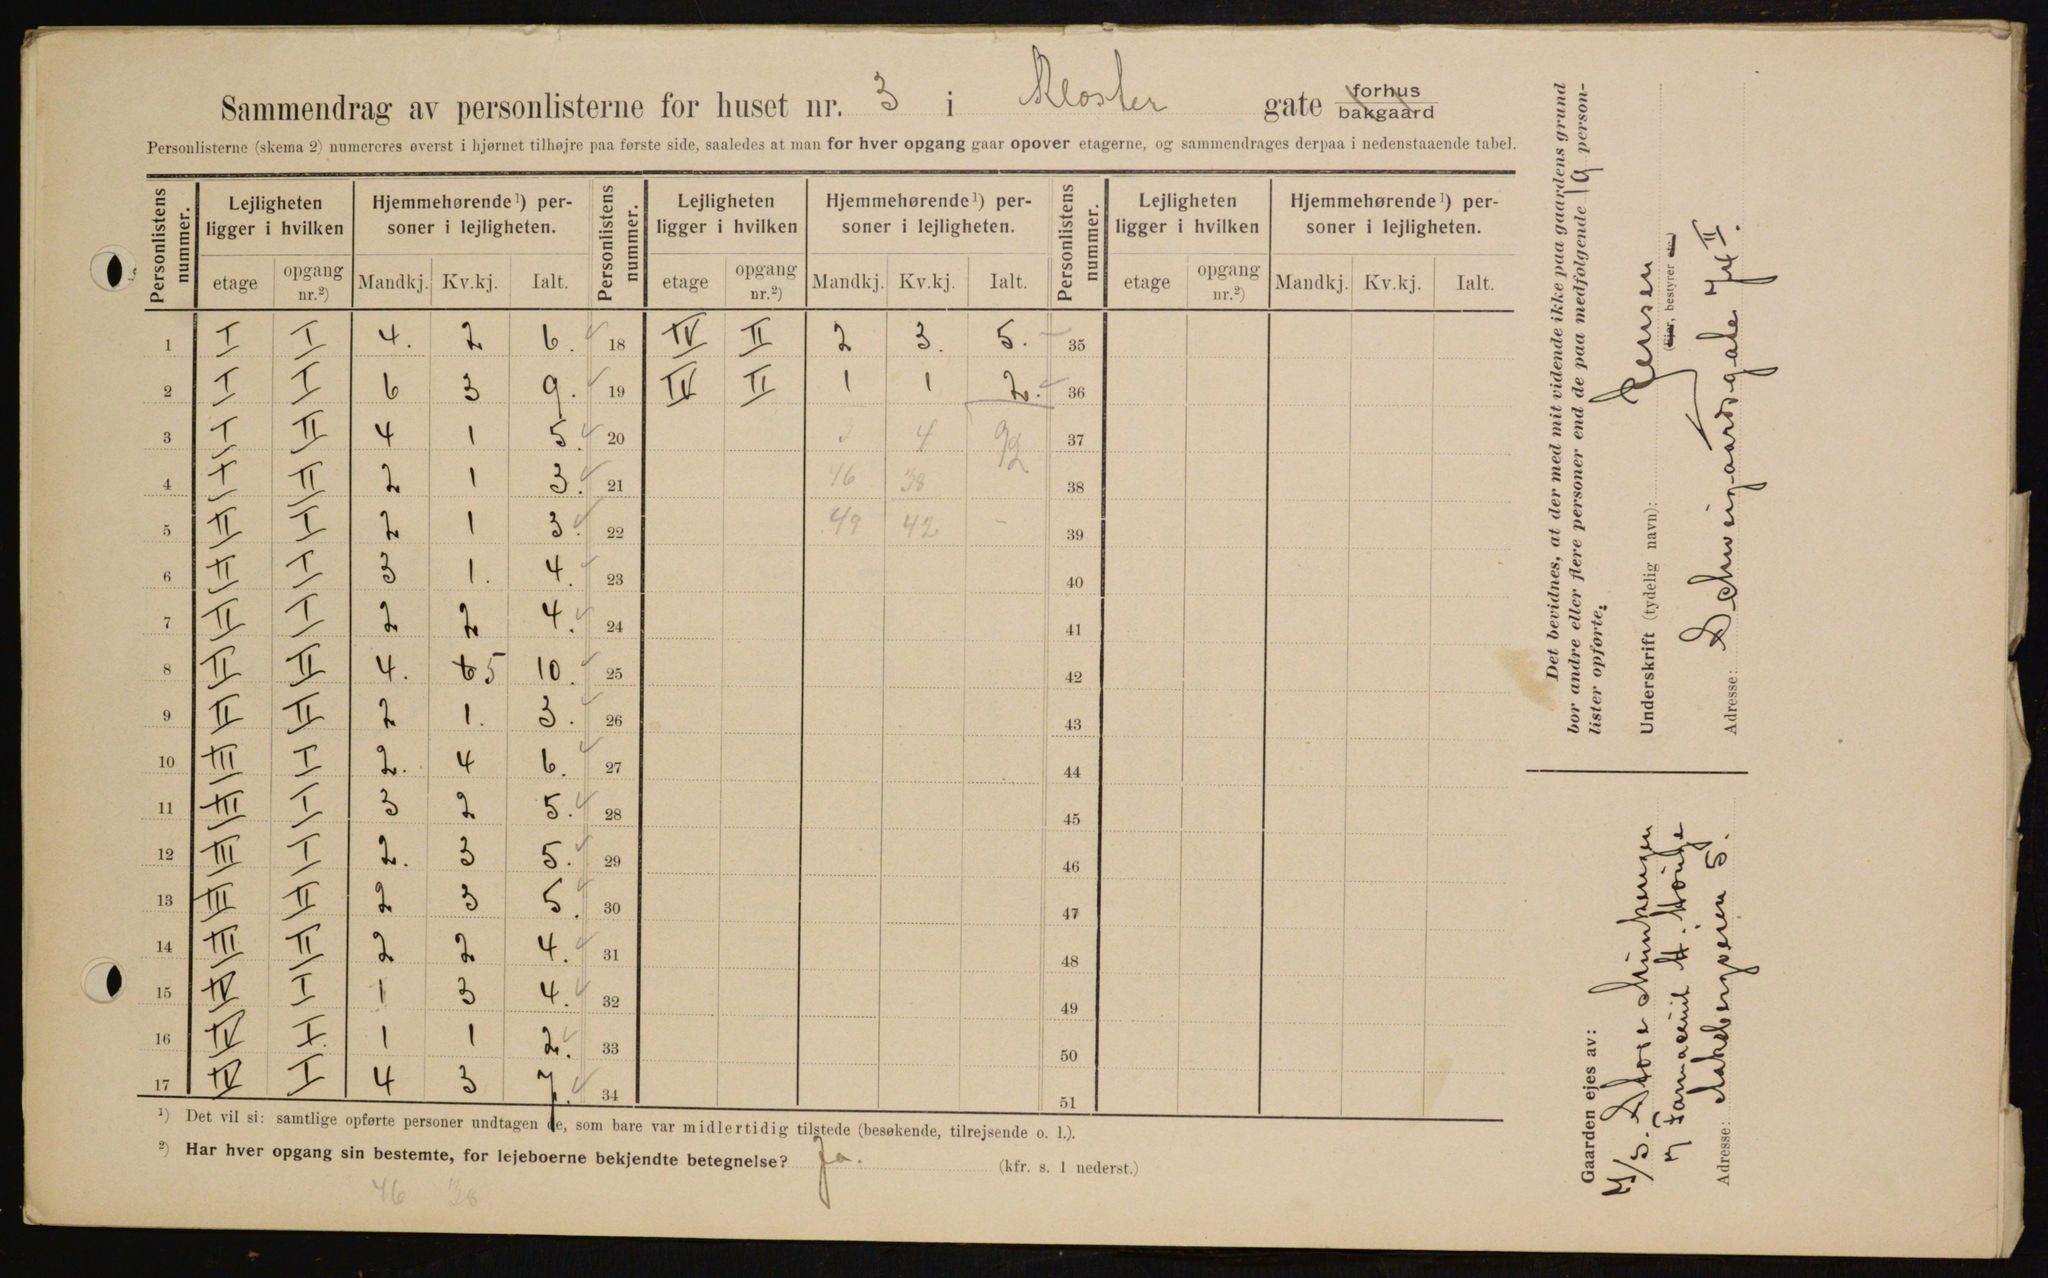 Sammendrag av personlisterne for huset nr. 3 i Kloster gate forhus bakgaard
Personlisterne (skema 2) numereres øverst i hjørnet tilhøjre paa første side, saaledes at man for hver opgang gaar opover etagerne, og sammendrages derpaa i nedenstaaende tabel.
Personlistens nummer. Lejligheten ligger i hvilken Hjemmehørende¹) personer i lejligheten. Personlistens nummer. Lejligheten ligger i hvilken Hjemmehørende¹) personer i lejligheten. Personlistens nummer. Lejligheten ligger i hvilken Hjemmehørende¹) personer i lejligheten.
etage opgang nr.²) Mandkj. Kv.kj. Ialt. etage opgang nr.²) Mandkj. Kv.kj. Ialt. etage opgang nr.²) Mandkj. Kv.kj. Ialt.
1 I I 4. 2 6. 18 IV II 2 3. 5. 35
2 I I 6 3 9. 19 IV II 1 1 2. 36
3 I II 4 1 5. 20 3 4 92 37
4 I II 2 1 3. 21 46 38 38
5 II I 2 1 3. 22 49 42 - 39
6 II I 3 1. 4. 23 40
7 II I 2 2 4. 24 41
8 II II 4. 6 5 10. 25 42
9 II II 2 1. 3. 26 43
10 III I 2. 4 6. 27 44
11 III I 3 2 5. 28 45
12 III I 2. 3 5. 29 46
13 III II 2 3 5. 30 47
14 III II 2 2 4. 31 48
15 IV I 1 3 4. 32 49
16 IV I. 1 1 2. 33 50
17 IV I 4 3 7. 34 51
¹) Det vil si: samtlige opførte personer undtagen de, som bare var midlertidig tilstede (besøkende, tilrejsende o. l.).
²) Har hver opgang sin bestemte, for lejeboerne bekjendte betegnelse? Ja. (kfr. s. 1 nederst.)
46 38
Det bevidnes, at der med mit vidende ikke paa gaardens grund
bor andre eller flere personer end de paa medfølgende 19 person-
lister opførte.
Underskrift (tydelig navn): Jensen
(Ejer, bestyrer etc.)
Adresse: Schweigaardsgate 74 II.
Gaarden ejes av:
A/S. Store Munkengen
Adresse: Akersveien 5.